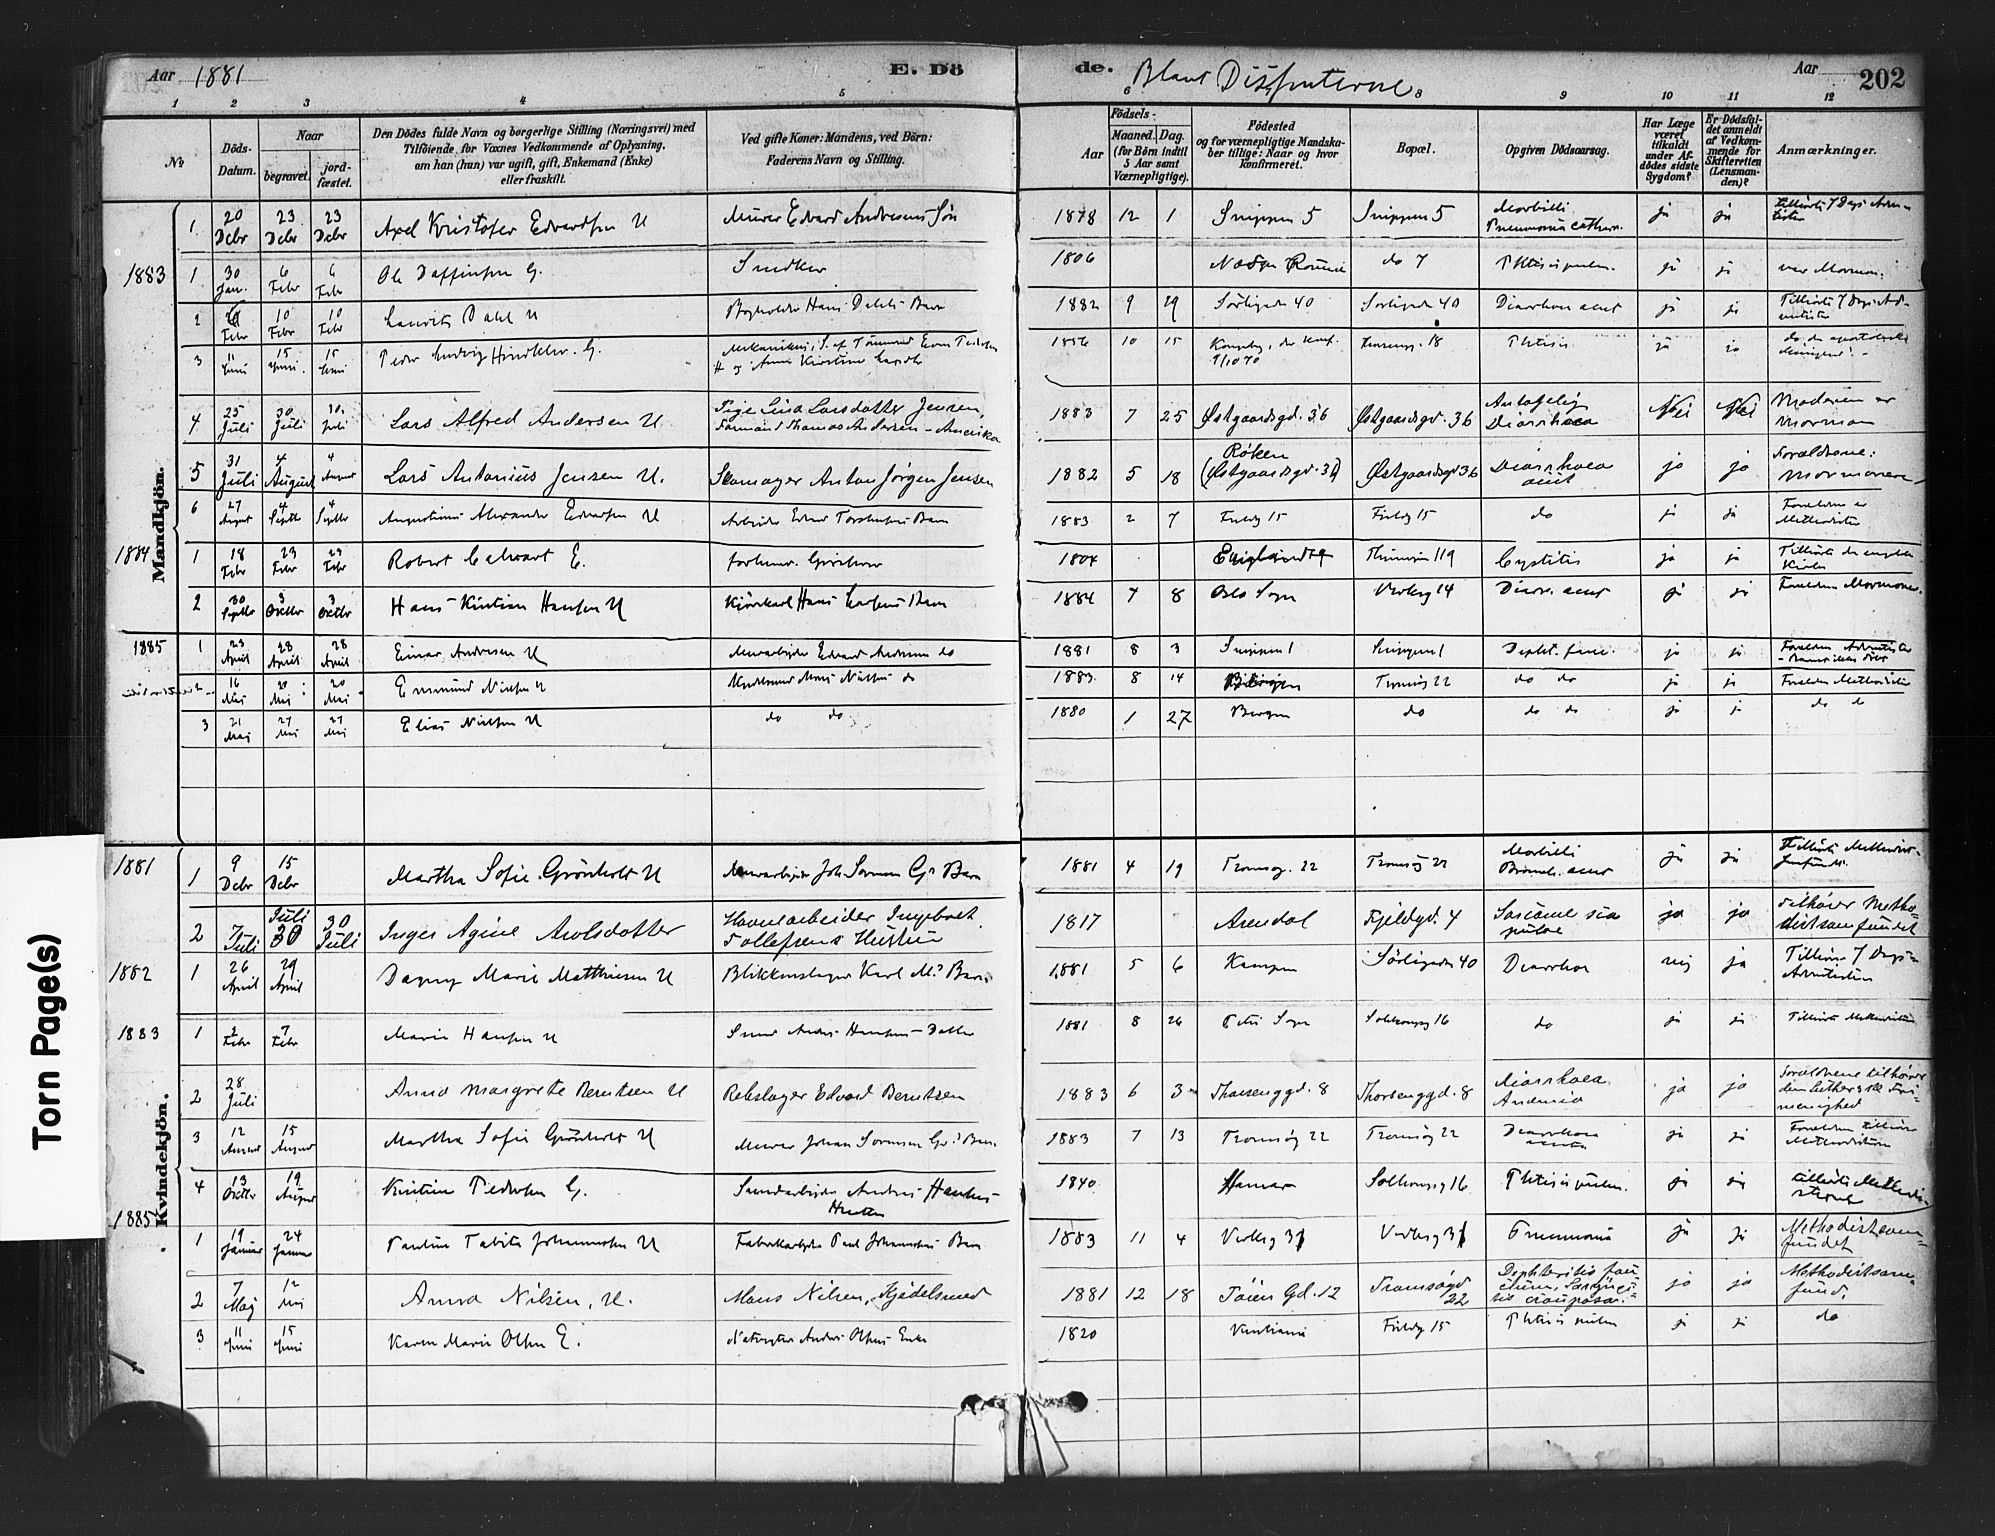 Aar 1881
E. Dö
de. Blant Dissenterne
Aar
202
1 2 3 4 5 6 8 9 10 11 12
No
Döds-Datum.
Naar
begravet.
jord-fæstet.
Den Dödes fulde Navn og borgerlige Stilling (Næringsvei) med
Tilföiende for Voxnes Vedkommende af Oplysning,
om han (hun) var ugift, gift, Enkemand (Enke)
eller fraskilt.
Ved gifte Koner: Mandens, ved Börn:
Faderens Navn og Stilling.
Födsels-
Aar
Maaned. Dag.
(for Börn indtil
5 Aar samt
Værnepligtige).
Födested
og for værnepligtige Mandska-
ber tillige: Naar og hvor
konfirmeret.
Bopæl.
Opgiven Dödsaarsag.
Har Læge
været
tilkaldt
under Af-
dödes sidste
Sygdom?
Er Dödsfal-
det anmeldt
af Vedkom-
mende for
Skifteretten
(Lensman-
den)?
Anmærkninger.
Mandkjön.
1 20 Debr 23 Debr 23 Debr Axel Kristofer Edvardsen U Murer Edvard Andresens Søn 1878 12 1 Snippen 5 Snippen 5 Morbilli Pneumonia cathar. ja ja Tilhørte 7 Dags Adventister
1883 1 30 Jan. 6 Febr 6 Febr Ole G. Snedker 1806 do 7 Phtisis pulm. ja ja var Mormon.
2 6 Febr 10 Febr 10 Febr Lauritz Dahl U Bogholder Hans Dahls Barn 1882 9 29 Sörligaden 40 Sörligaden 40 Diarrhoea acut ja ja Tilhørte 7 Dags Adventister
3 11 Juni 15 Juni 15 Juni Peder Ludvig G. Mekanikus, S. af Tømmermand 1856 10 15 Kongsberg, do Konf. 1/10 70 18 Phtisis ja ja
4 25 Juli 30 Juli 30 Juli Lars Alfred Andersen U Pige Lina Larsdatter Jensen, Formand Thomas Andersen - Amerika 1883 7 25 Østgaardsgd. 36 Østgaardsgd. 36 Antagelig Diarrhoea Nei Nei Moderen er Mormon
5 31 Juli 4 August 4 August Lars Antonius Jensen U. Skomager Anton Jørgen Jensen 1882 5 18 Røken (Østgaardsgd. 36) Østgaardsgd 36 Diarrhoea acut ja ja Forældrene: Mormonere
6 27 August 4 Septbr 4 Septbr Augustinus Alexander Edvardsen U Arbeider Edvard Barn 1883 2 7 15 15 do ja ja Forældrene er Methodister
1884 1 18 Febr 23 Febr 23 Febr Robert Calvart E. forhenv. 1804 England 119 Cystitis ja ja Tilhørte den engelske Kirke
2 30 Septbr 3 Octbr 3 Octbr Hans Kristian Hansen U Kjørekarl Hans Barn 1884 7 8 Oslo Sogn 14 Diarr. acut ja ja Forældrene Mormoner.
1885 1 23 April 28 April 28 April Einar Andresen U Murarbeider Edvard Andresen do 1881 8 3 Snippen 1 Snippen 1 Dipht. fauc. ja ja Forældrene Adventister
16 Mai 20 Mai 20 Mai Emmund Nielsen U Mons Nielsen do 1883 8 14 Bergen Tromsög 22 do do ja ja Forældrene Methodister
3 21 Mai 27 Mai 27 Mai Elias Nielsen U do do 1880 1 27 Bergen do do do ja ja do do
Kvindekjön.
1881 1 9 Debr 15 Debr Martha Sofie Grönholt U Murarbeider Joh Sörensen Gs Barn 1881 4 19 Tromsög. 22 Tromsög 22 Morbilli Bronch. acut ja ja Tilhörte Methodistsamfundet.
2 7 Juli Juli 30 30 Juli Inger Agine Arolsdatter Havnearbeider Ingebret Tollefsens Hustru 1817 Arendal Fjeldgd. 4 ja ja Tilhører Methodistsamfundet
1882 1 26 April 29 April Dagny Marie Matthiesen U Blikkenslager Karl M.s Barn. 1881 5 6 Kampen Sörligaden 40 Diarrhoe nej ja Tilhörer 7 Dags Adventisten
1883 1 2 Febr 7 Febr Marie Hansen U Smed Anders Hansens Datter 1881 8 26 Petri Sogn 16 do ja ja Tilhörte Methodisten
2 28 Juli Anna Margrete Berntsen U Rebslager Edvard Berntsen 1883 6 3 Thorsenggd. 8 Thorsenggd. 8 Diarrhoea Anæmia ja ja Forældrene tilhører den lutherske Frimenighed
3 12 August 15 August Martha Sofie Grönholt U Murer Johan Sörensen Gr.s Barn 1883 7 13 Tromsög 22 Tromsög 22 Diarrhoea acuta ja ja Forældrene tilhörer Methodisten
4 13 Octbr 19 August Kristine Pedersen G. Andreas Hansens Hustru 1840 Hamar 16 Phtisis pulm. ja ja tilhörte Methodisterne
1885 1 19 Januar 24 Januar Pauline Tabita Johannesen U Fabrikarbeider Paul Johannesens Barn 1883 11 4 Verksg 31 Verksg 31 Pneumonia ja ja Methodistsamfundet
2 7 Maj 12 Mai Anna Nilsen, U. Mons Nilsen, Kjedelsmed 1881 12 18 Töien Gd. 12 Tromsögd 22 Diphteritis faucium, Laryngitis crouposa. ja ja Methodistsamfund.
3 11 Juni 15 Juni Karen Marie Olsen E. Natvægter Anders Olsens Enke 1820 Kristiania 15 Phtisis pulm ja ja do
Torn Page(s)